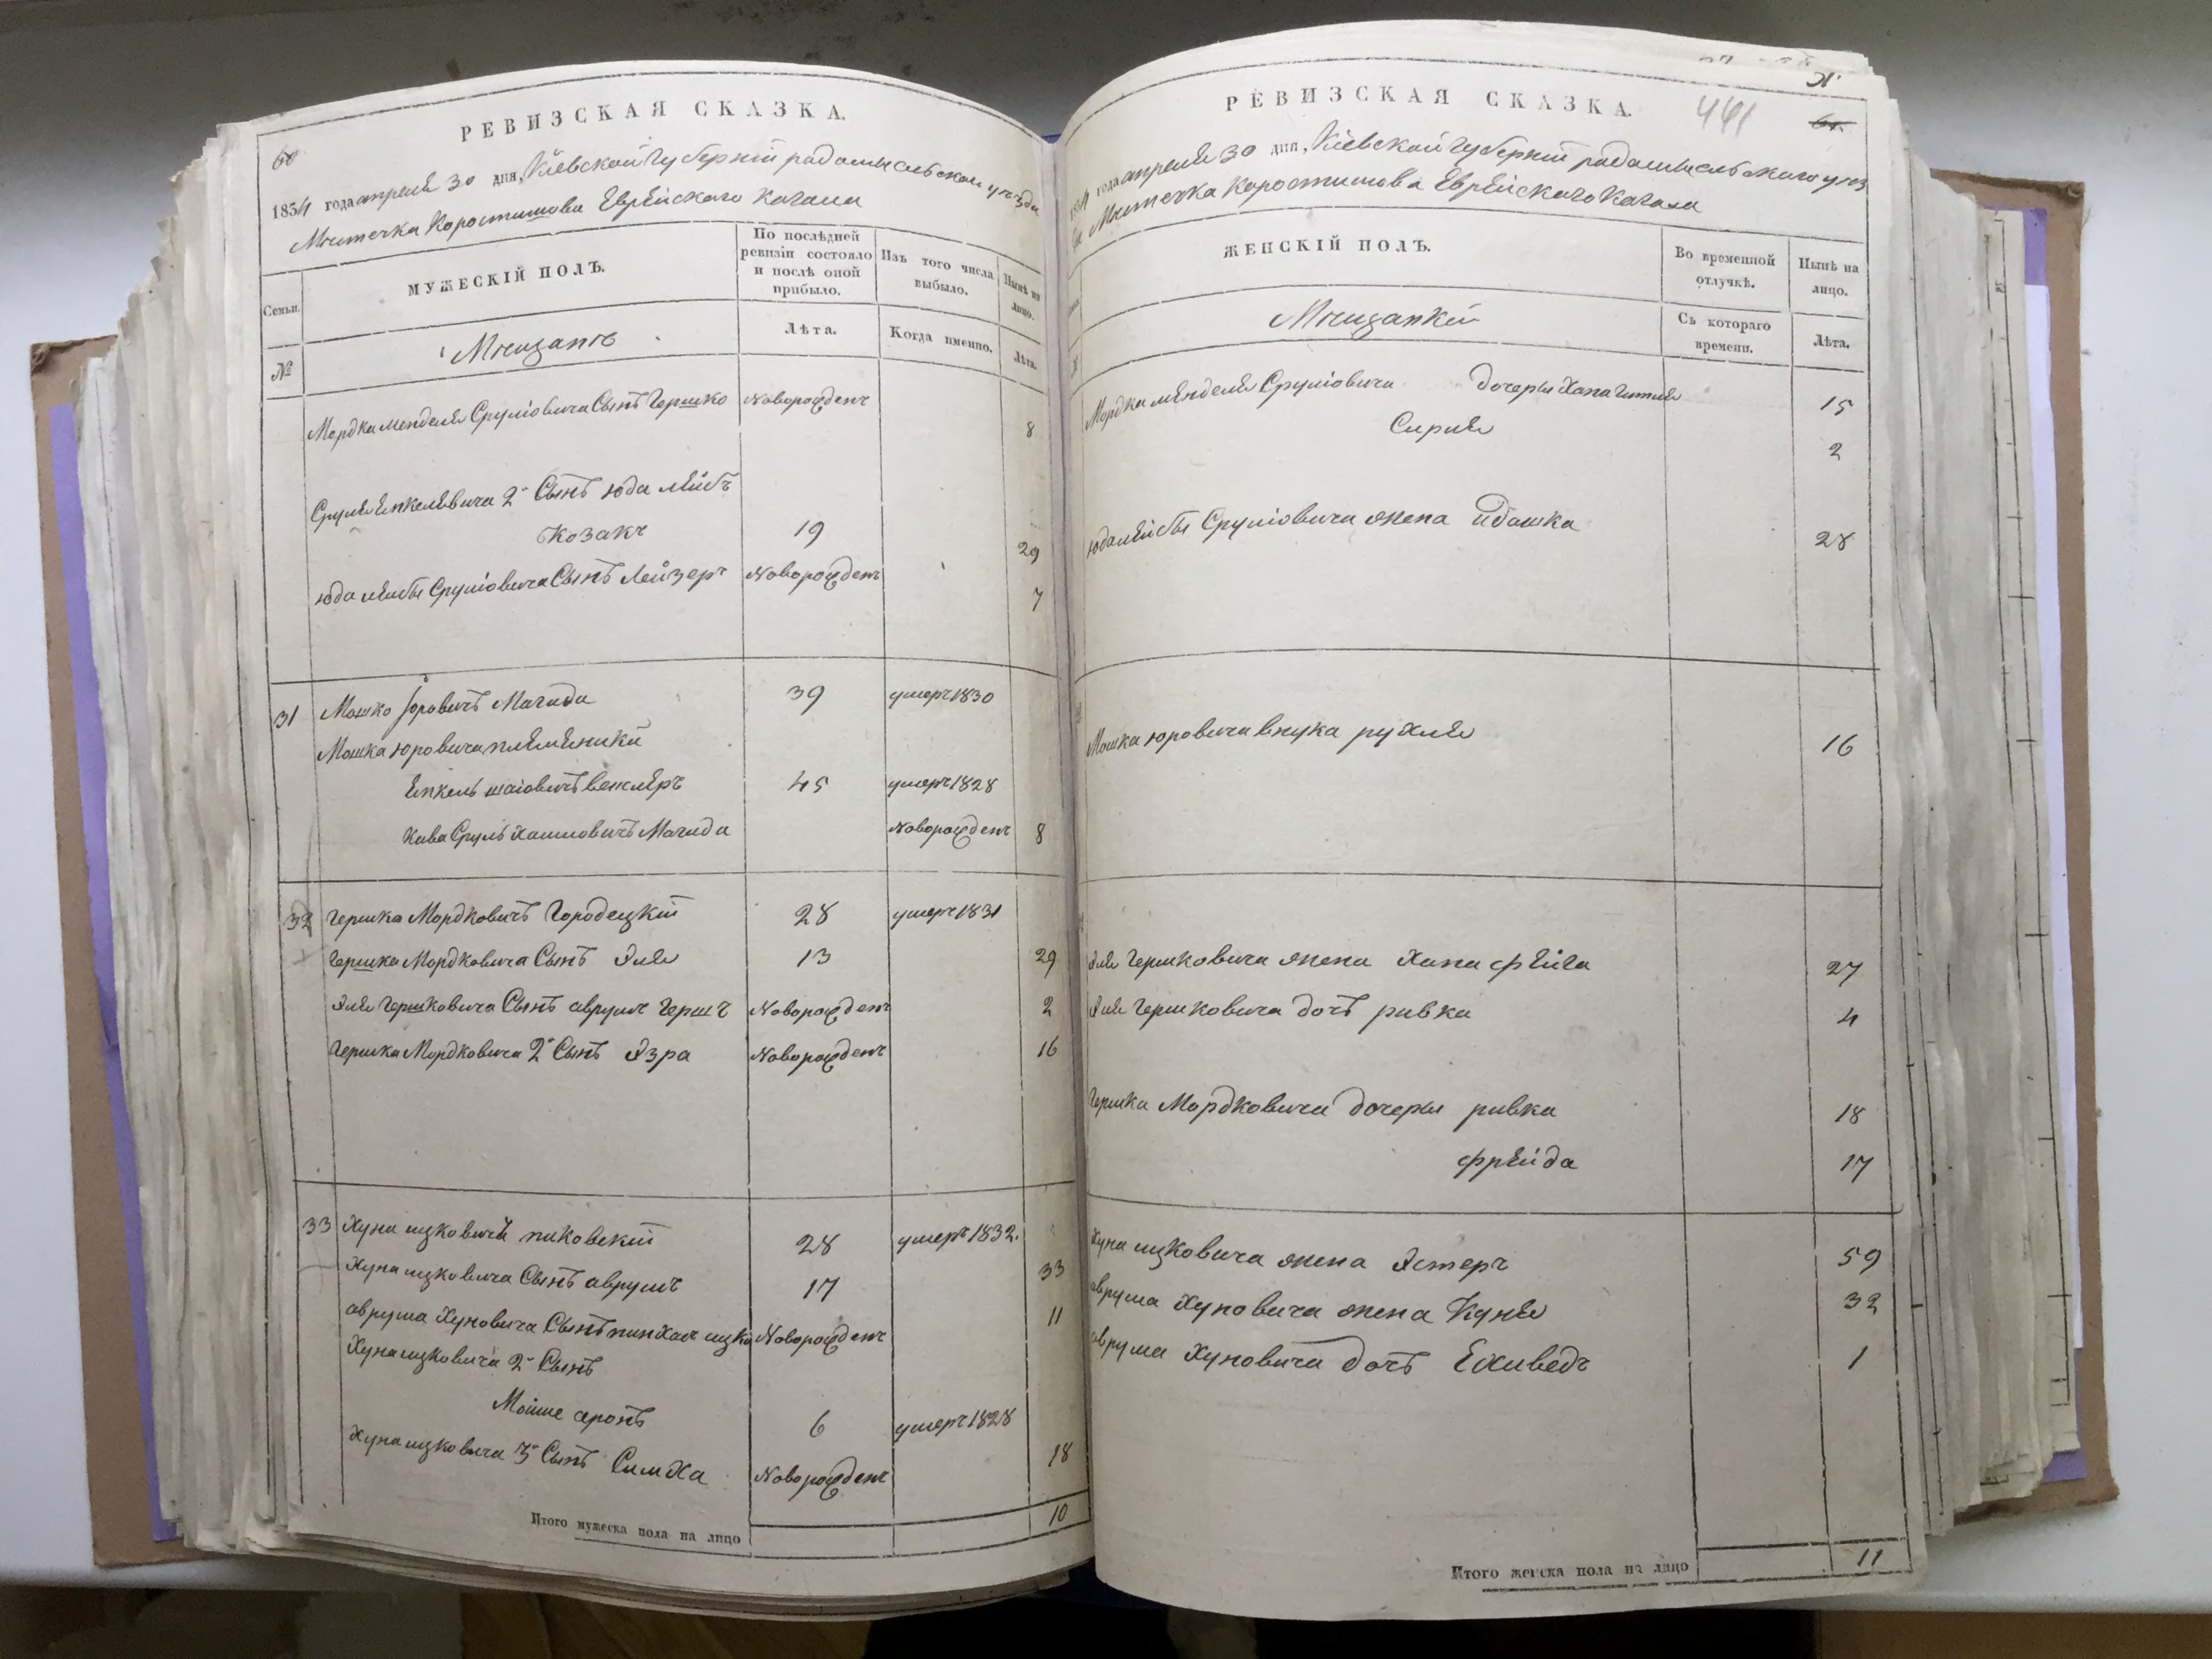 РЕВИЗСКАЯ СКАЗКА.
60
1834 года апреля 30 дня, Кіевской Губерніи радомысльскаго уезда
Местечка Коростишова Еврейскаго Кагала
Семьи.
МУЖЕСКІЙ ПОЛЪ.
По послѣдней ревизіи состояло и послѣ оной прибыло.
Изъ того числа выбыло.
Нынѣ на лицо.
№
Мещанъ
Лѣта.
Когда именно.
Лѣта.
Мордка Менделя Сруліовича Сынъ Гершко Новорожденъ 8
Сруля Енкелевича 2й Сынъ Юда Лейбъ
Козакъ 19 29
Юда Лейбы Сруліовича Сынъ Лейзеръ Новорожденъ 7
31 Мошко Юровичъ Магида 39 умеръ 1830
Мошка Юровича племеники
Енкель шаіовичъ векслеръ 45 умеръ 1828
Кива Сруль Хаимовичъ Магида Новорожденъ 8
32 Гершка Мордковичъ Городецкій 28 умеръ 1831
Гершка Мордковича Сынъ Эля 13 29
Эля Гершковича Сынъ аврумъ Гершъ Новорожденъ 2
Гершка Мордковича 2й Сынъ Эзра Новорожденъ 16
33 Хуна ицковичъ пиковскій 28 умеръ 1832.
Хуна ицковича Сынъ аврумъ 17 33
аврума Хуновича Сынъ пинхасъ ицко Новорожденъ 11
Хуна ицковича 2й Сынъ
Мойше аронъ 6 умеръ 1828
Хуна ицковича 3й Сынъ Симха Новорожденъ 18
Итого мужеска пола на лицо 10
РЕВИЗСКАЯ СКАЗКА.
441
61
1834 года апреля 30 дня, Кіевской Губерніи радомысльскаго уез
да Местечка Коростишова Еврейскаго Кагала
ЖЕНСКІЙ ПОЛЪ.
Во временной отлучкѣ.
Нынѣ на лицо.
№
Мещанки
Съ котораго времени.
Лѣта.
Мордка менделя Сруліовича дочеры Хана Гитля 15
Сирля 2
Юда лейбы Сруліовича жена Идашка 28
Мошка Юровича внука рухля 16
Эля Гершковича жена Хана фейга 27
Эля Гершковича дочъ ривка 4
Гершка Мордковича дочеры ривка 18
фрейда 17
Хуна ицковича жена Эстеръ 59
аврума Хуновича жена Куня 32
аврума Хуновича дочъ Ехиведъ 1
Итого женска пола на лицо 11